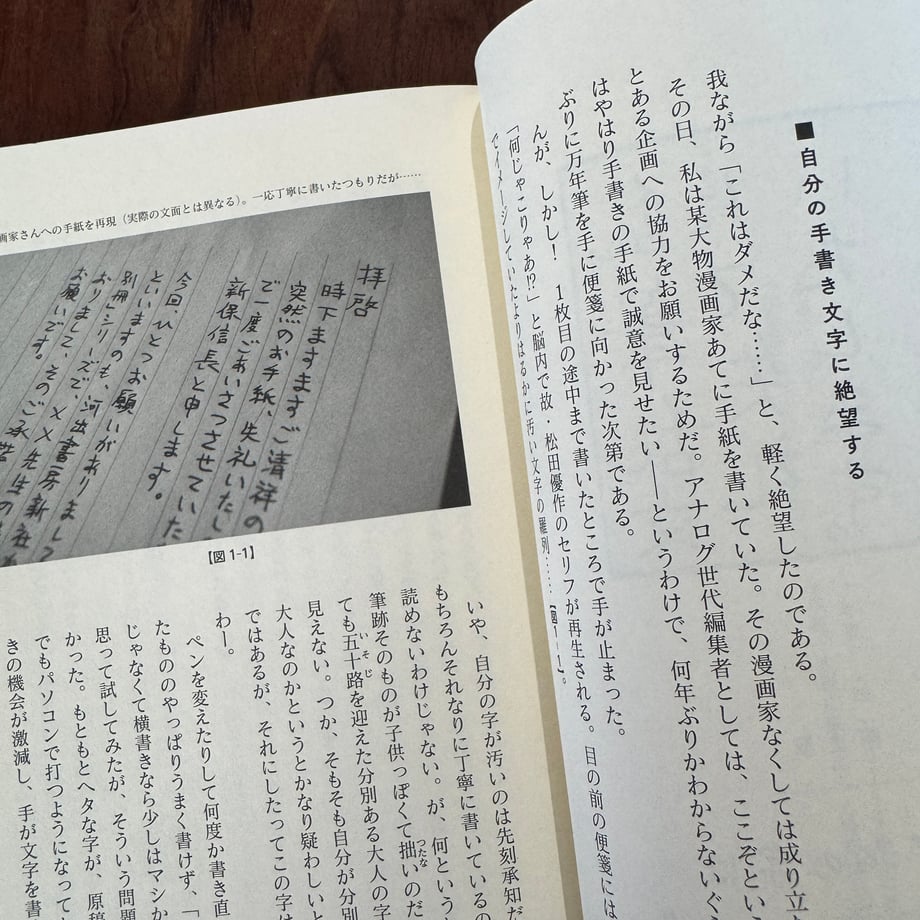 ■自分の手書き文字に絶望する
我ながら「これはダメだな……」と、軽く絶望したのである。
その日、私は某大物漫画家あてに手紙を書いていた。その漫画家なくしては成り立
とある企画への協力をお願いするためだ。アナログ世代編集者としては、ここぞとい
はやはり手書きの手紙で誠意を見せたい――というわけで、何年ぶりかわからないぐ
ぶりに万年筆を手に便箋に向かった次第である。
んが、しかし！　１枚目の途中まで書いたところで手が止まった。
「何じゃこりゃあ!?」と脳内で故・松田優作のセリフが再生される。目の前の便箋には
でイメージしていたよりはるかに汚い文字の羅列……【図１−１】。
画家さんへの手紙を再現（実際の文面とは異なる）。一応丁寧に書いたつもりだが……
拝啓
時下ますますご清祥の
突然のお手紙、失礼いたし
ご一度ごあいさつさせていた
新保信長と申します。
今回、ひとつお願いがありまして
といいますのも、河出書房新社
別冊シリーズで、××先生の
おりまして、そのご承諾
お願いです。
【図1-1】
いや、自分の字が汚いのは先刻承知だ
もちろんそれなりに丁寧に書いているの
読めないわけじゃない。が、何という
筆跡そのものが子供っぽくて拙いのだ
ても五十路を迎えた分別ある大人の字
見えない。つか、そもそも自分が分別
大人なのかというとかなり疑わしいと
ではあるが、それにしたってこの字は
わー。
ペンを変えたりして何度か書き直
たもののやっぱりうまく書けず、「
じゃなくて横書きなら少しはマシか
思って試してみたが、そういう問題
かった。もともとヘタな字が、原稿
でもパソコンで打つようになって
きの機会が激減し、手が文字を書